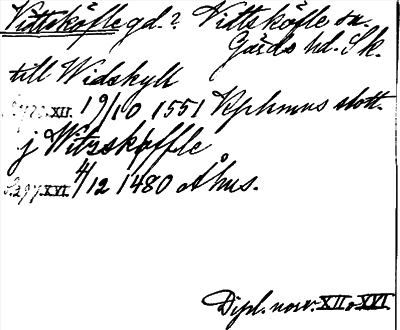 Vittsköfle gd.? Vittsköfle sn.
Gärds hd. Sk.
till Widskyll
XII. 19/10 1551 Kphmns slott.
j Witzskøffle
XVI. 4/12 1480 Åhus.
Dipl. norv. XII o XVI.